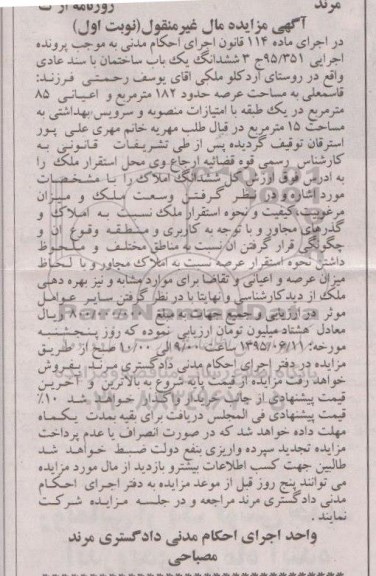 مرند
روزنامه ارک
آگهی مزایده مال غیرمنقول(نوبت اول)
در اجرای ماده ۱۱۴ قانون اجرای احکام مدنی به موجب پرونده
اجرایی ۹۵/۳۵۱ج ۳ ششدانگ یک باب ساختمان با سند عادی
واقع در روستای اردکلو ملکی اقای یوسف رحمتی فرزند:
قاسمعلی به مساحت عرصه حدود ۱۸۲ مترمربع و اعیانی ۸۵
مترمربع در یک طبقه با امتیازات منصوبه و سرویس بهداشتی به
مساحت ۱۵ مترمربع در قبال طلب مهریه خانم مهری علی پور
استرقان توقیف گردیده پس از طی تشریفات قانونی به
کارشناس رسمی قوه قضائیه ارجاع وی محل استقرار ملک را
به ادرس فوق ارزش کل ششدانگ املاک را با مشخصات
مورد اشاره و در نظر گرفتن وسعت ملک و میزان
مرغوبیت،کیفیت و نحوه استقرار ملک نسبت به املاک و
گذرهای مجاور و با توجه به کاربری و منطقه وقوع ان و
چگونگی قرار گرفتن ان نسبت به مناطق مختلف و ملحوظ
داشتن نحوه استقرار عرصه نسبت به املاک مجاور و با لحاظ
میزان عرصه و اعیانی و تقاضا برای موارد مشابه و نیز بهره دهی
ملک از دید کارشناسی ونهایتا با در نظر گرفتن سایر عوامل
موثر در ارزیابی و جمیع جهات به مبلغ ریال
معادل هشتاد میلیون تومان ارزیابی نموده که روز پنجشنبه
مورخه: ۱۳۹۵/۰۶/۱۱ ساعت ۹/۰۰ الی ۱۰/۰۰ صبح از طریق
مزایده در دفتر اجرای احکام مدنی دادگستری مرند بفروش
خواهد رفت مزایده از قیمت پایه شروع به بالاترین و آخرین
قیمت پیشنهادی از جانب خریدار واگذار خواهد شد ۱۰٪
قیمت پیشنهادی فی المجلس دریافت برای بقیه بمدت یکماه
مهلت داده خواهد شد که در صورت انصراف یا عدم پرداخت
مزایده تجدید سپرده واریزی بنفع دولت ضبط خواهد شد
طالبین جهت کسب اطلاعات بیشترو بازدید از مال مورد مزایده
می توانند پنج روز قبل از موعد مزایده به دفتر اجرای احکام
مدنی دادگستری مرند مراجعه و در جلسه مزایده شرکت
نمایند .
واحد اجرای احکام مدنی دادگستری مرند
مصباحی